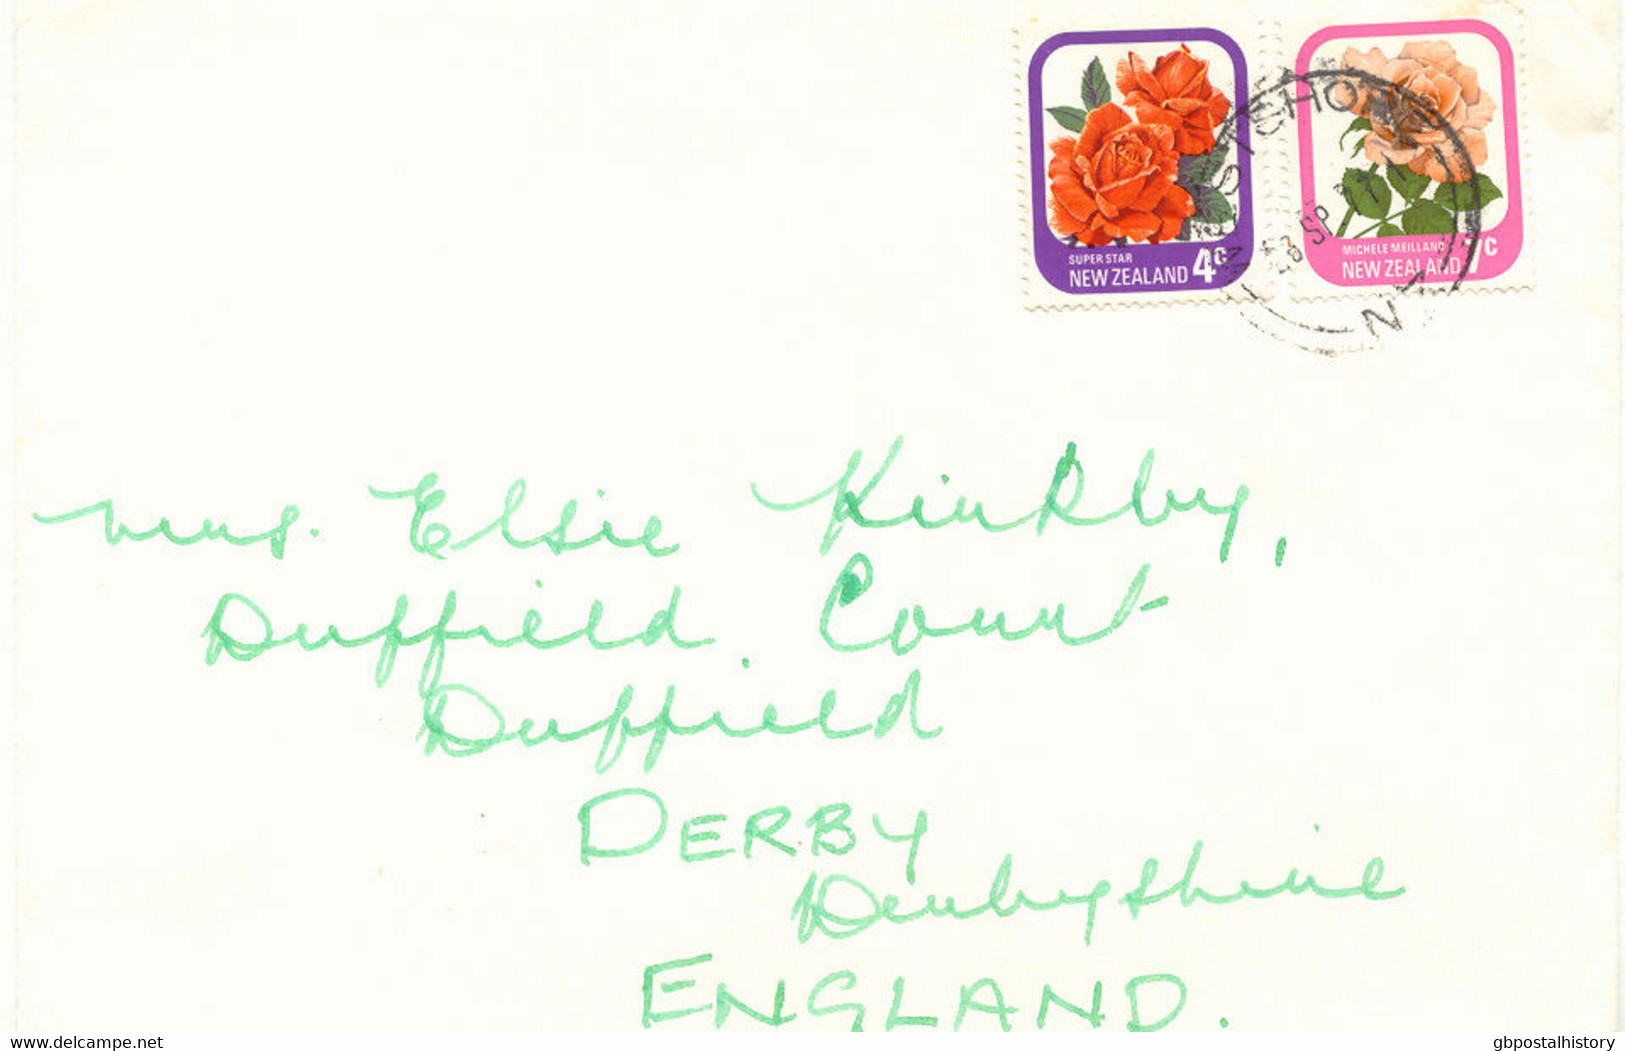 SUPER STAR
NEW ZEALAND 4c
MICHELE MEILLAND
NEW ZEALAND 7c
WESTSHORE
SP 77
N.Z.
Mrs. Elsie Kirkby,
Duffield Court
Duffield
DERBY
Derbyshire
ENGLAND.
www.delcampe.net
gbpostalhistory